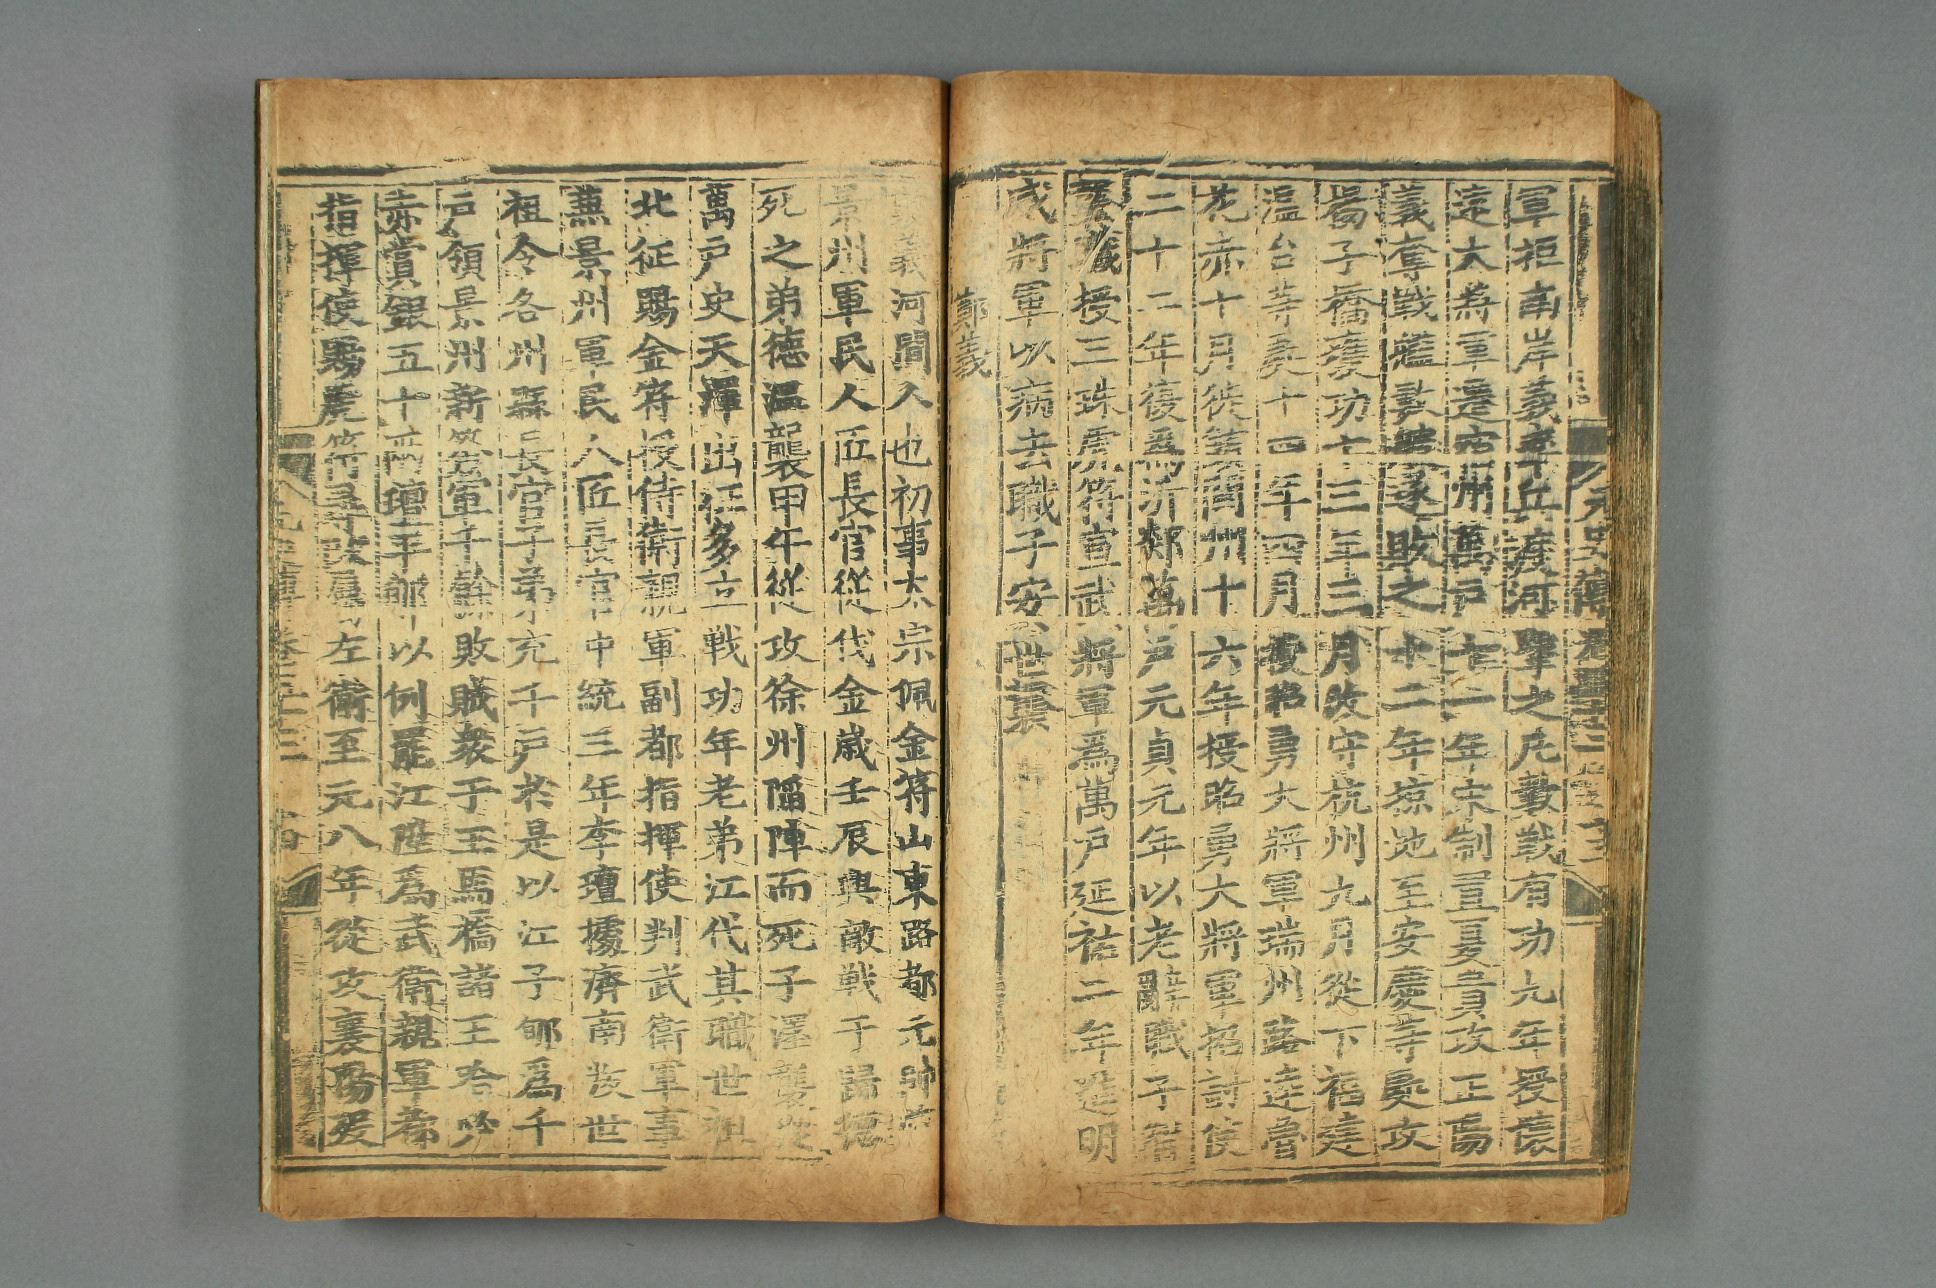 元史傳卷五十三 十三
軍拒南岸義率兵渡河擊之凡數戰有功九年授懷
遠大將軍還宿州萬戶十一年宋制置夏貴攻正陽
義奪戰艦數艘逐敗之十二年掠地至安慶等處攻
揚子橋獲功十三年三月改守杭州九月從下福建
溫台等處十四年四月勇大將軍瑞州路達魯
花赤十月徙州十六年授昭勇大將軍招討使
二十二年復爲沂郯萬戶元貞元年以老辭職子智
襲職授三珠虎符宣武將軍爲萬戶延祐二年進明
威將軍以病去職子安世襲
鄭義
鄭義河間人也初事太宗佩金符山東路都元帥兼
景州軍民人匠長官從伐金歲壬辰與敵戰于歸德
死之弟德溫襲甲午從攻徐州陷陣而死子澤襲從
萬戶史天澤出征多立戰功年老弟江代其職世祖
北征賜金符授侍衛親軍副都指揮使判武衛軍事
兼景州軍民人匠長官中統三年李璮據濟南叛世
祖令各州縣長官子弟充千戶於是以江子郇爲千
戶領景州新簽軍千餘敗賊衆于王馬橋諸王哈必
赤賞銀五十兩璮平郇以例罷江陞爲武衛親軍都
指揮使賜虎符尋改屬左衛至元八年從攻襄陽爰
元史傳卷五十三 十四